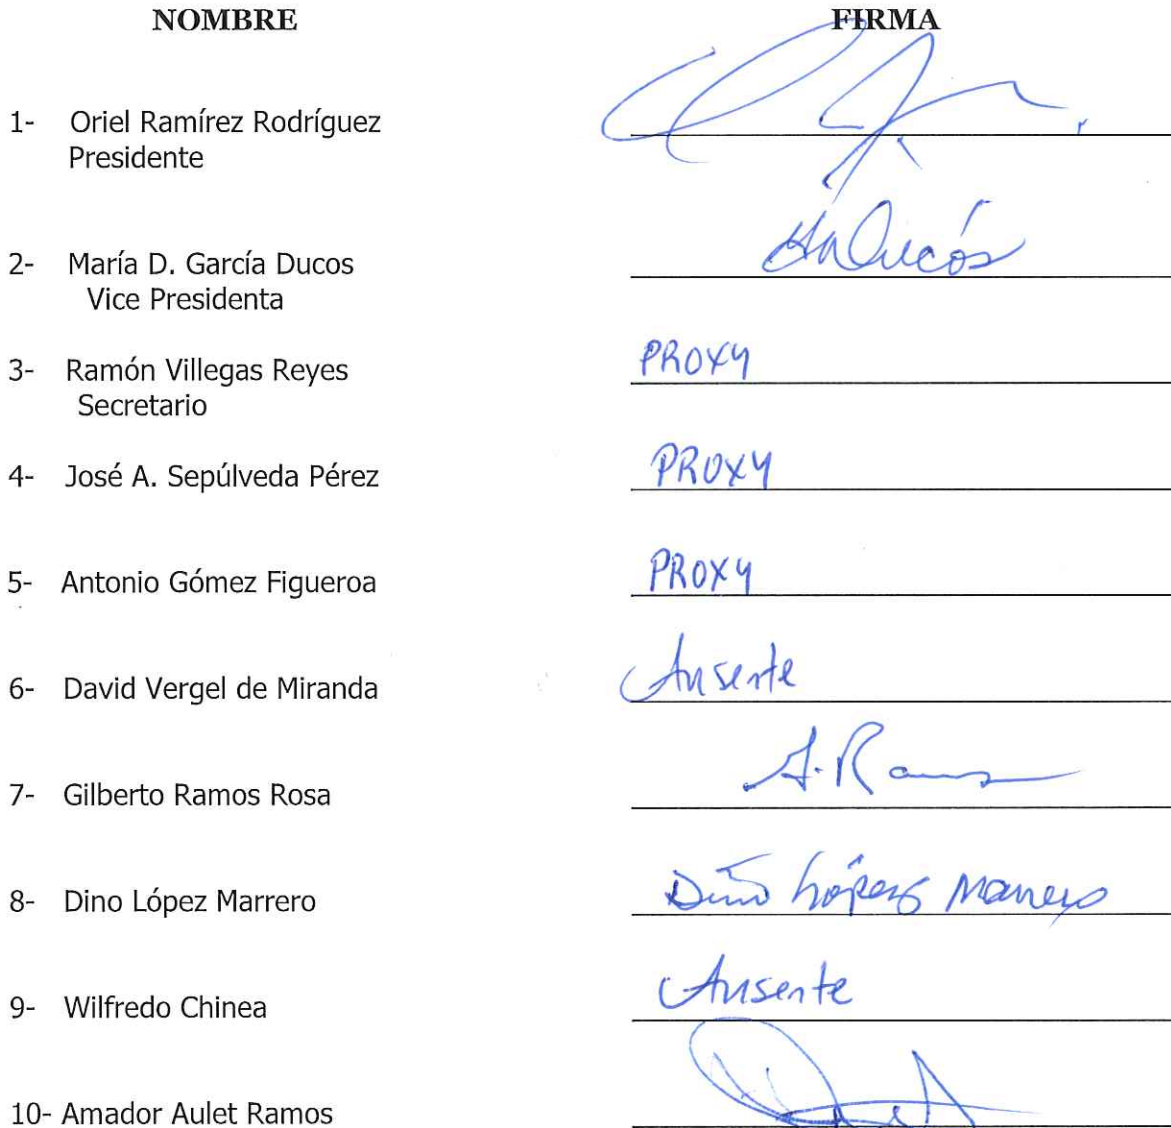 NOMBRE FIRMA
1- Oriel Ramírez Rodríguez
Presidente
2- María D. García Ducos
Vice Presidenta
3- Ramón Villegas Reyes PROXY
Secretario
4- José A. Sepúlveda Pérez PROXY
5- Antonio Gómez Figueroa PROXY
6- David Vergel de Miranda Ausente
7- Gilberto Ramos Rosa
8- Dino López Marrero Dino López Marrero
9- Wilfredo Chinea Ausente
10- Amador Aulet Ramos